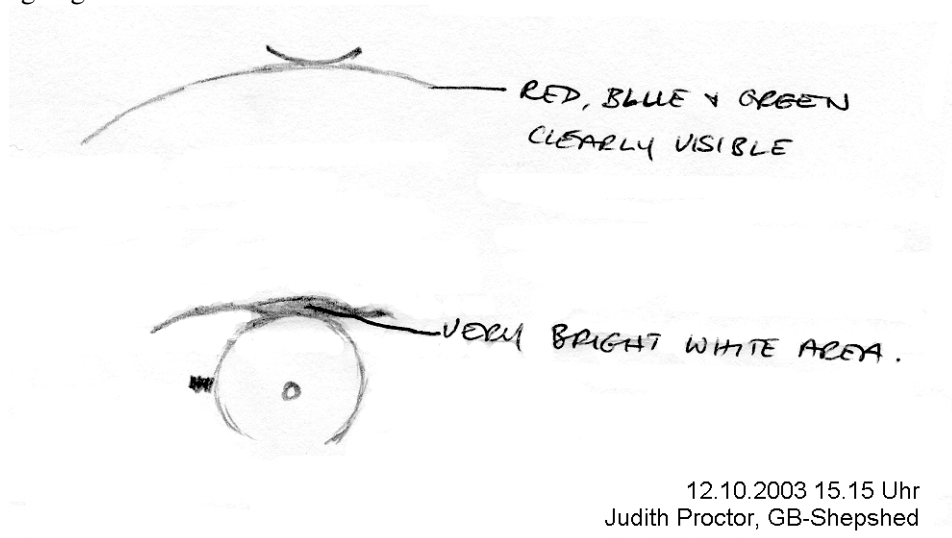 RED, BLUE & GREEN
CLEARLY VISIBLE
VERY BRIGHT WHITE AREA.
12.10.2003 15.15 Uhr
Judith Proctor, GB-Shepshed